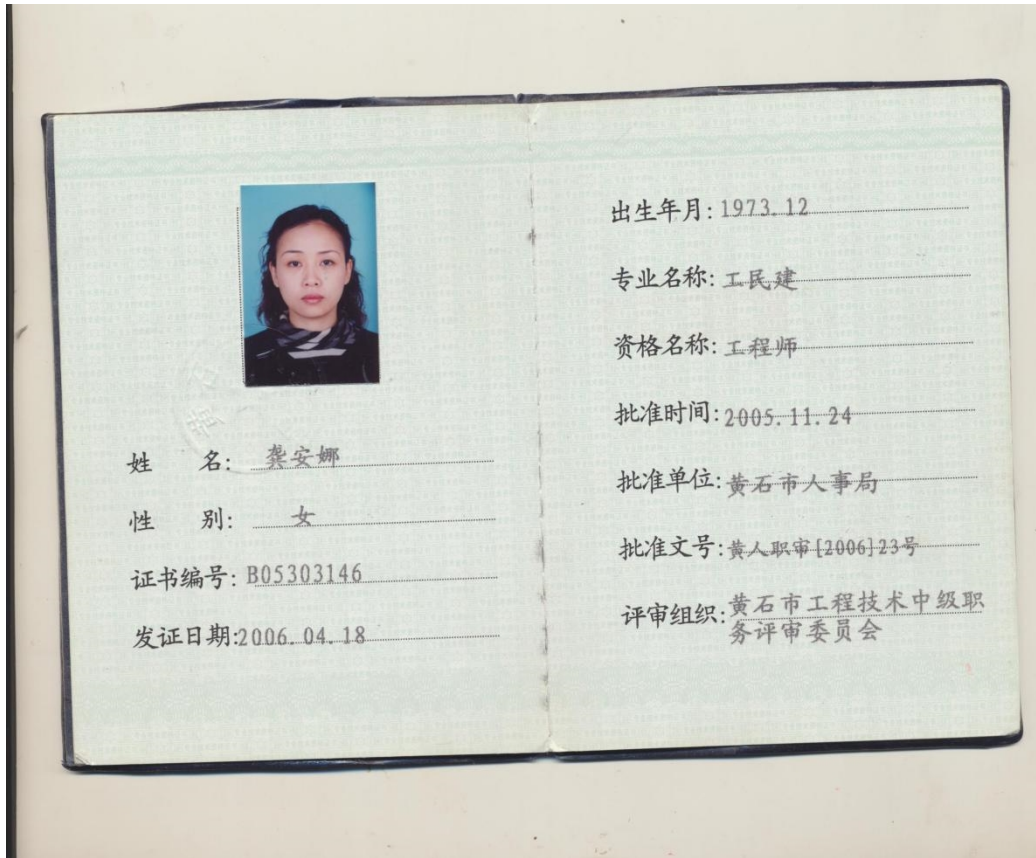 姓 名: 龚安娜
性 别: 女
证书编号: B05303146
发证日期:2006.04.18
出生年月: 1973.12
专业名称: 工民建
资格名称: 工程师
批准时间: 2005.11.24
批准单位: 黄石市人事局
批准文号: 黄人职审[2006]23号
评审组织: 黄石市工程技术中级职
务评审委员会